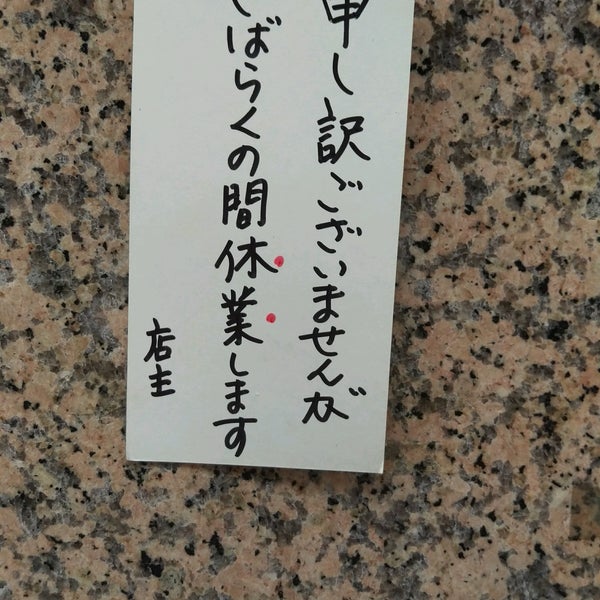 申し訳ございませんが
しばらくの間休業します
店主